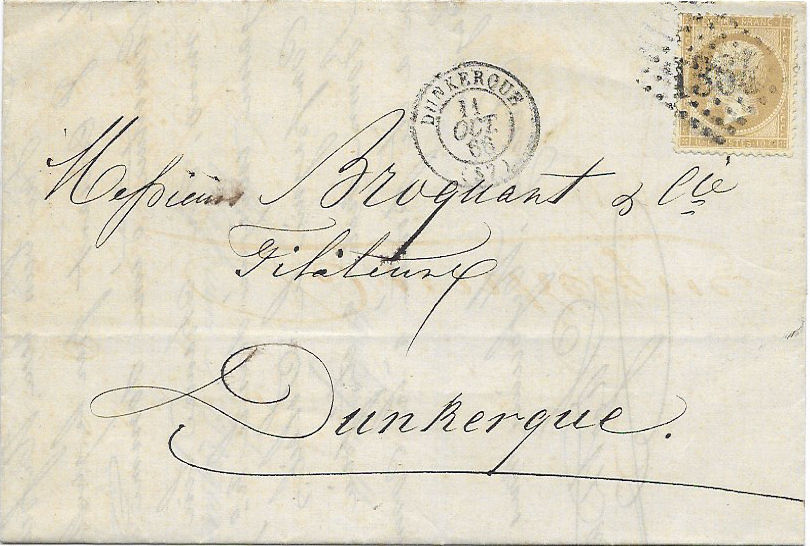 DUNKERQUE
11
OCT.
66
(57)
Messieurs Broquant & Cie
Filateurs
Dunkerque.